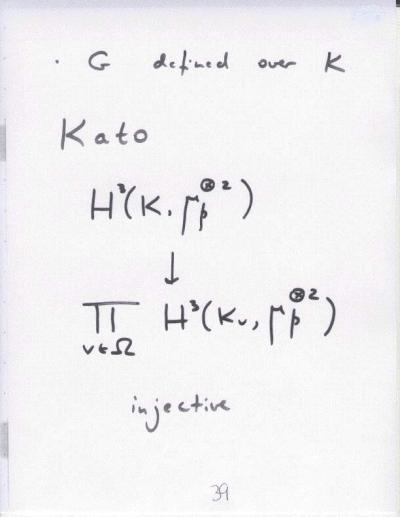 · G defined over K
Kato
H³(K, μ_p^{⊗2})
↓
∏_{v∈Ω} H³(K_v, μ_p^{⊗2})
injective
39